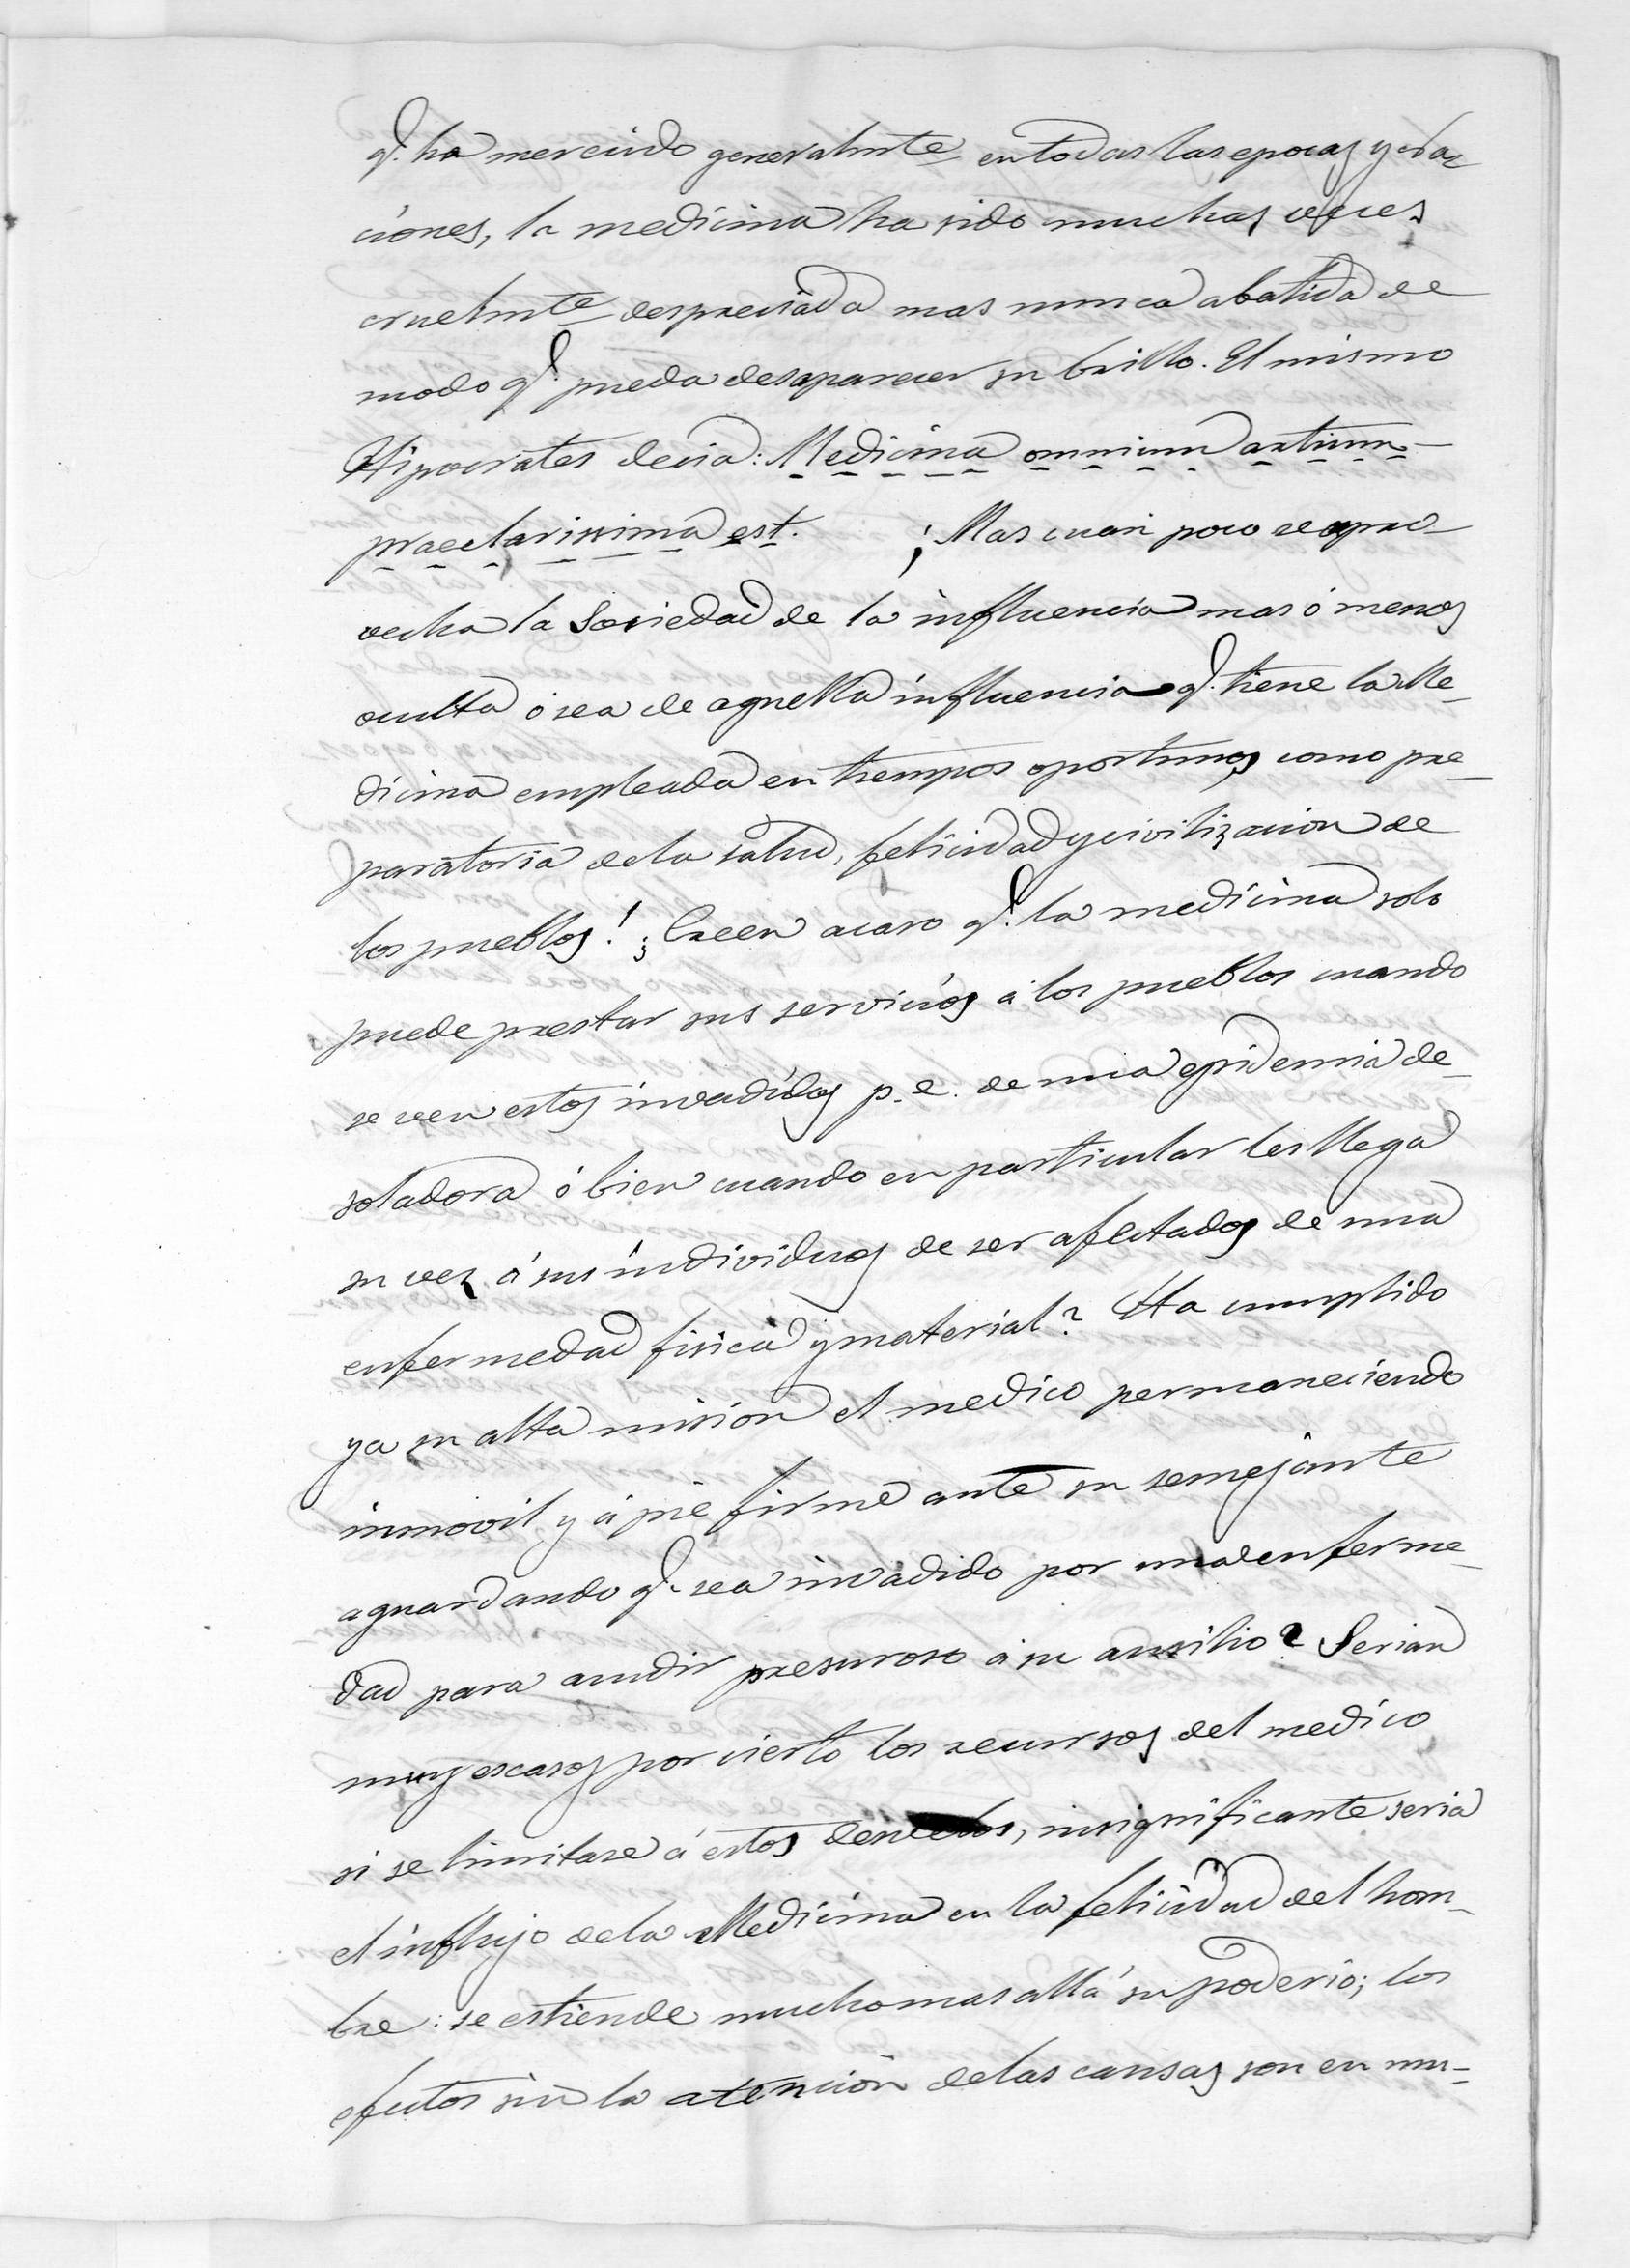 q.e ha merecido generalmte en todas las epocas y na-
ciones, la medicina ha sido muchas veces
cruelmte despreciada mas nunca abatida de
modo q.e pueda desaparecer su brillo. El mismo
Hipocrates decia: Medicina omnium artium
praeclarissima est. ¡Mas cuan poco se apro-
vecha la Sociedad de la influencia mas ó menos
oculta ó sea de aquella influencia q.e tiene la Me-
dicina empleada en tiempos oportunos como pre-
paratoria de la salud, felicidad y civilizacion de
los pueblos! ¿Creen acaso q.e la medicina solo
puede prestar sus servicios á los pueblos cuando
se ven estos invadidos p. e. de una epidemia de-
soladora ó bien cuando en particular les llega
su vez á sus individuos de ser afectados de una
enfermedad fisica y material? Ha cumplido
ya su alta mision el medico permaneciendo
inmovil y á pié firme ante su semejante
aguardando q.e sea invadido por una enferme-
dad para acudir presuroso á su ausilio? Serian
muy escasos por cierto los recursos del medico
si se limitase á estos, insignificante seria
el influjo de la Medicina en la felicidad del hom-
bre: se estiende mucho mas allá su poderio; los
efectos sin la atencion de las causas son en mu-